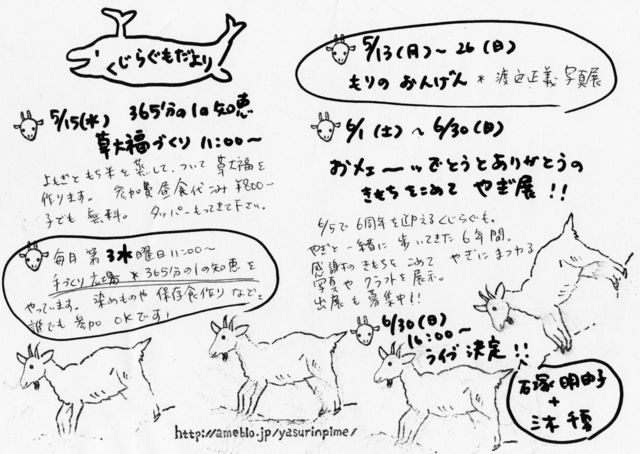 くじらぐもだより
5/15(水) 365分の1の知恵
草大福づくり 11:00〜
よもぎともち米を蒸して、ついて 草大福を
作ります。 参加費昼食代込み ¥800ー
子ども 無料。 タッパーもってきて下さい。
毎月 第3水曜日 11:00〜
手づくり広場 * 365分の1の知恵 を
やっています。 染めものや 保存食作り など…
誰でも 参加 OKです!
5/13(月)〜26(日)
もりの おんげん * 渡辺正義 写真展
6/1(土)〜6/30(日)
おメェ〜〜ッでとうとありがとうの
きもちをこめて やぎ展!!
6/5で6周年を迎えるくじらぐも。
やぎと一緒に歩いてきた6年間。
感謝のきもちをこめて やぎにまつわる
写真やクラフトを展示。
出展も募集中!!
6/30(日)
16:00〜
ライブ 決定!!
石塚 明由子
+
三木 千
http://ameblo.jp/yasurinpime/